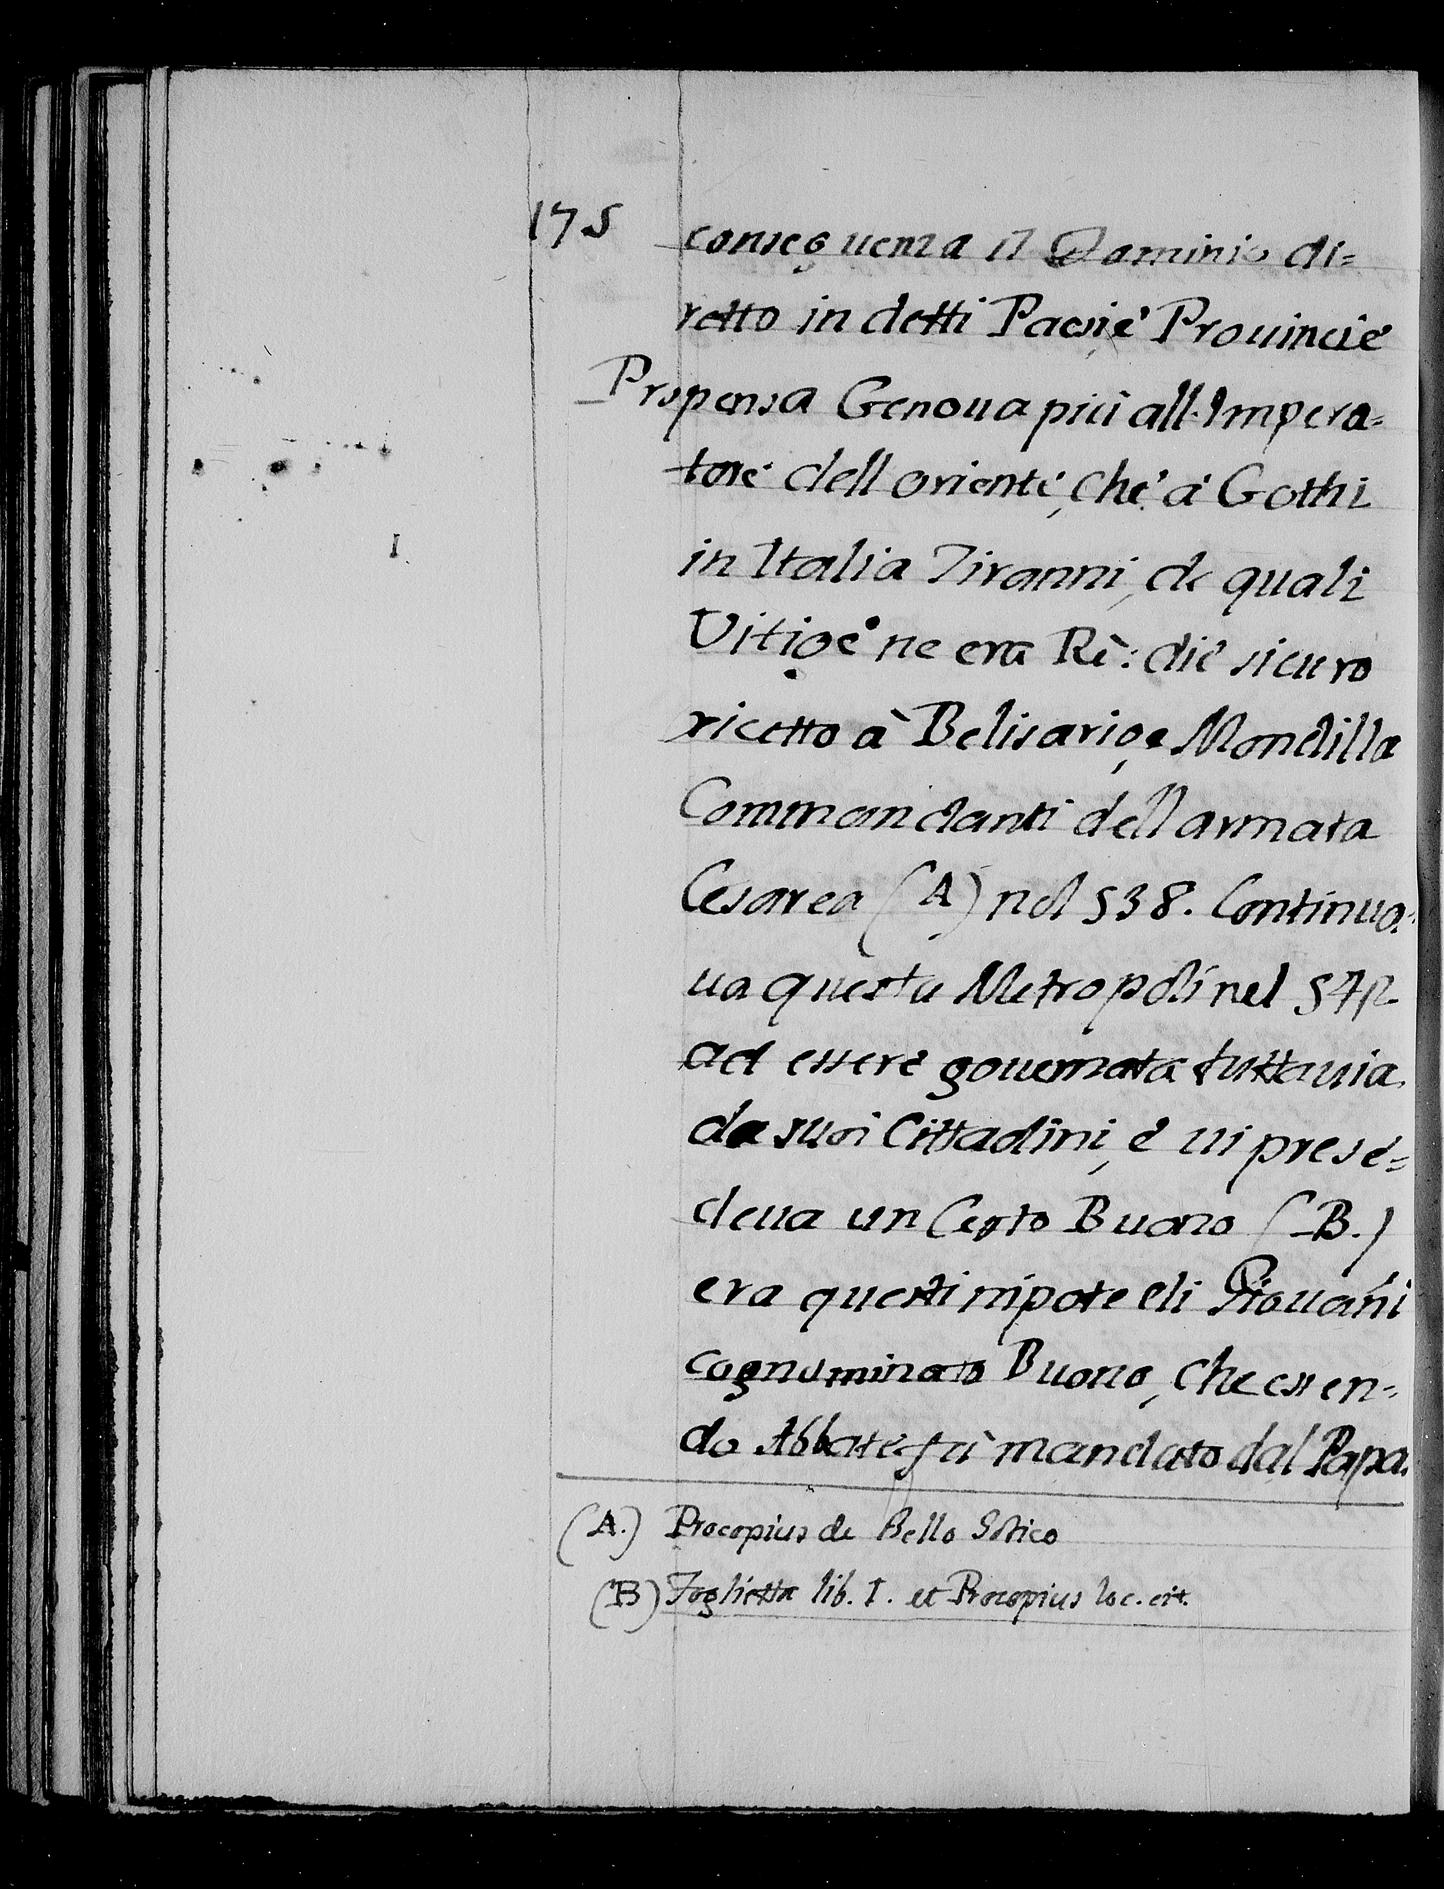 175
conseguenza il Dominio di=
retto in detti Paesi è Prouincie
Propensa Genoua più all'Impera=
tore dell oriente, che à Gothi
in Italia Tiranni, de quali
Uitige ne era Rè: diè sicuro
ricetto à Belisario, e Mondilla
Commandanti dell armata
Cesarea (A) nel 538. Continua=
ua questa Metropoli nel
ad essere gouernata tuttauia
da suoi Cittadini, è ui prese=
deua un Certo Buono (B.)
era questi nipote di Giouañi
cognominato Buono, che essen=
do Abbate fù mandato dal Papa
(A.) Procopius de Bello Gotico
(B) Foglietta lib. I. et Procopius loc. cit.